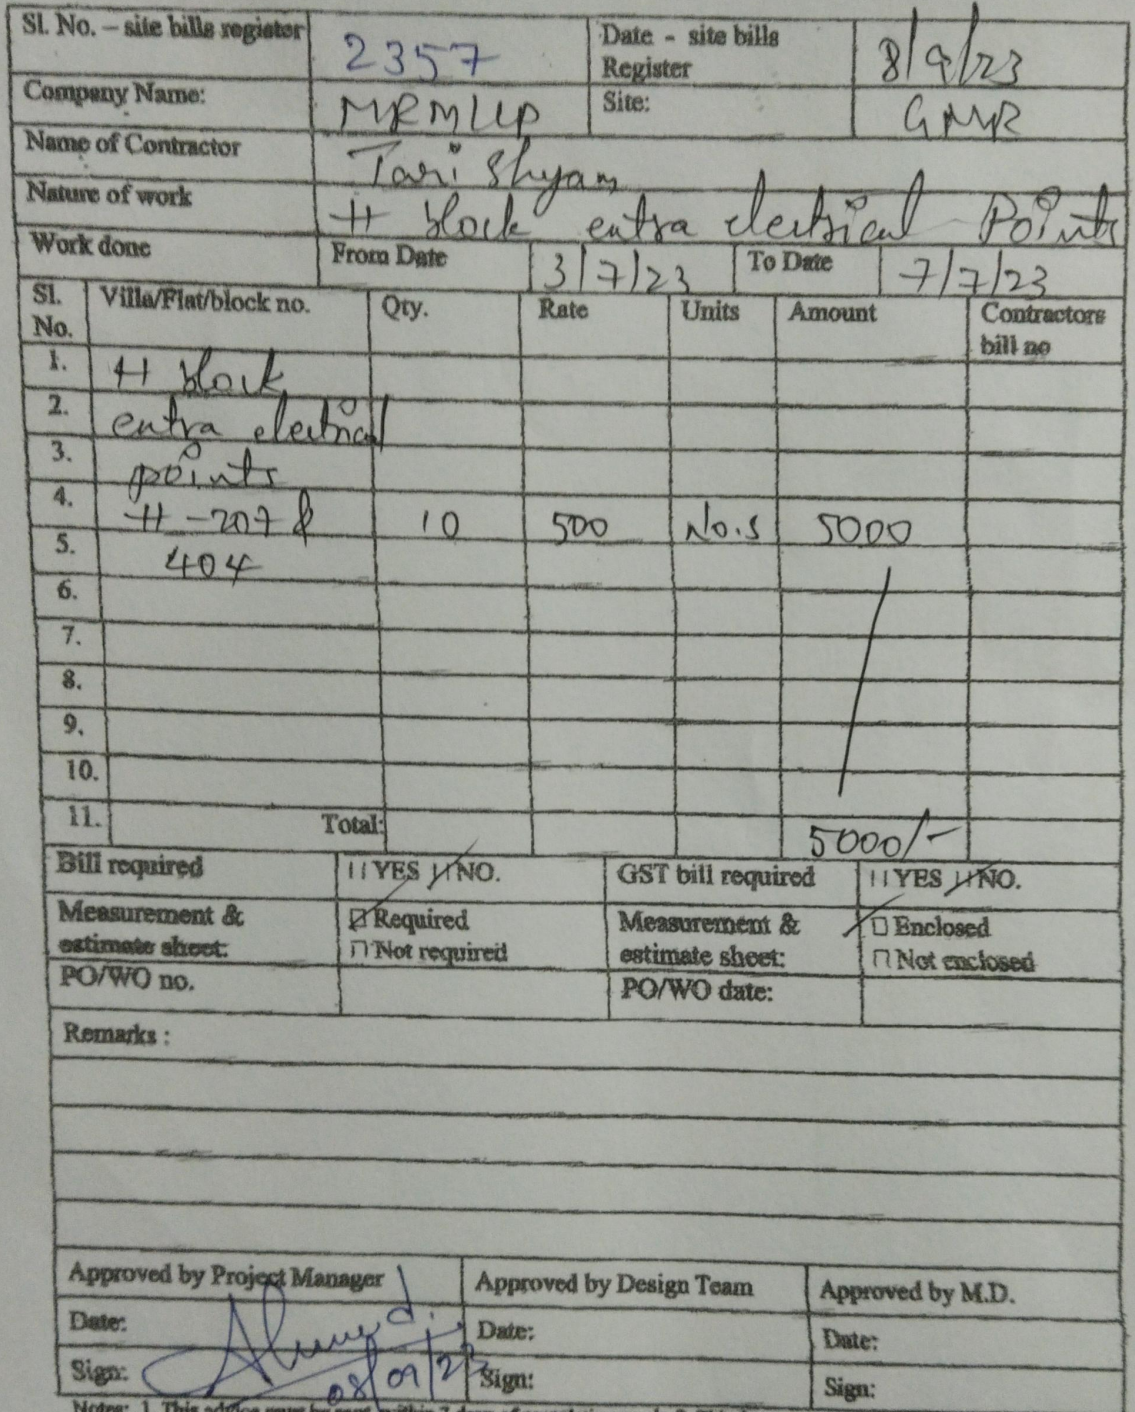 Sl. No. – site bills register 2357 Date - site bills Register 8/9/23
Company Name: MRMLLP Site: GMR
Name of Contractor Tari Shyam
Nature of work H block extra electrical Points
Work done From Date 3/7/23 To Date 7/7/23
Sl. No. Villa/Flat/block no. Qty. Rate Units Amount Contractors bill no
1. H block
2. extra electrical
3. points
4. H-207 & 10 500 No.s 5000
5. 404
6.
7.
8.
9.
10.
11. Total: 5000/-
Bill required YES NO. GST bill required YES NO.
Measurement & estimate sheet: Required Not required Measurement & estimate sheet: Enclosed Not enclosed
PO/WO no. PO/WO date:
Remarks :
Approved by Project Manager Approved by Design Team Approved by M.D.
Date: Date: Date:
Sign: 08/09/23 Sign: Sign: